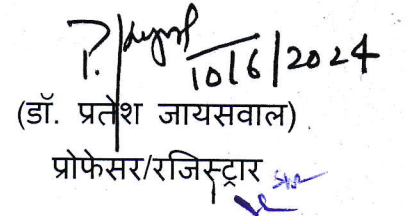 10/6/2024
(डॉ. प्रतेश जायसवाल)
प्रोफेसर/रजिस्ट्रार